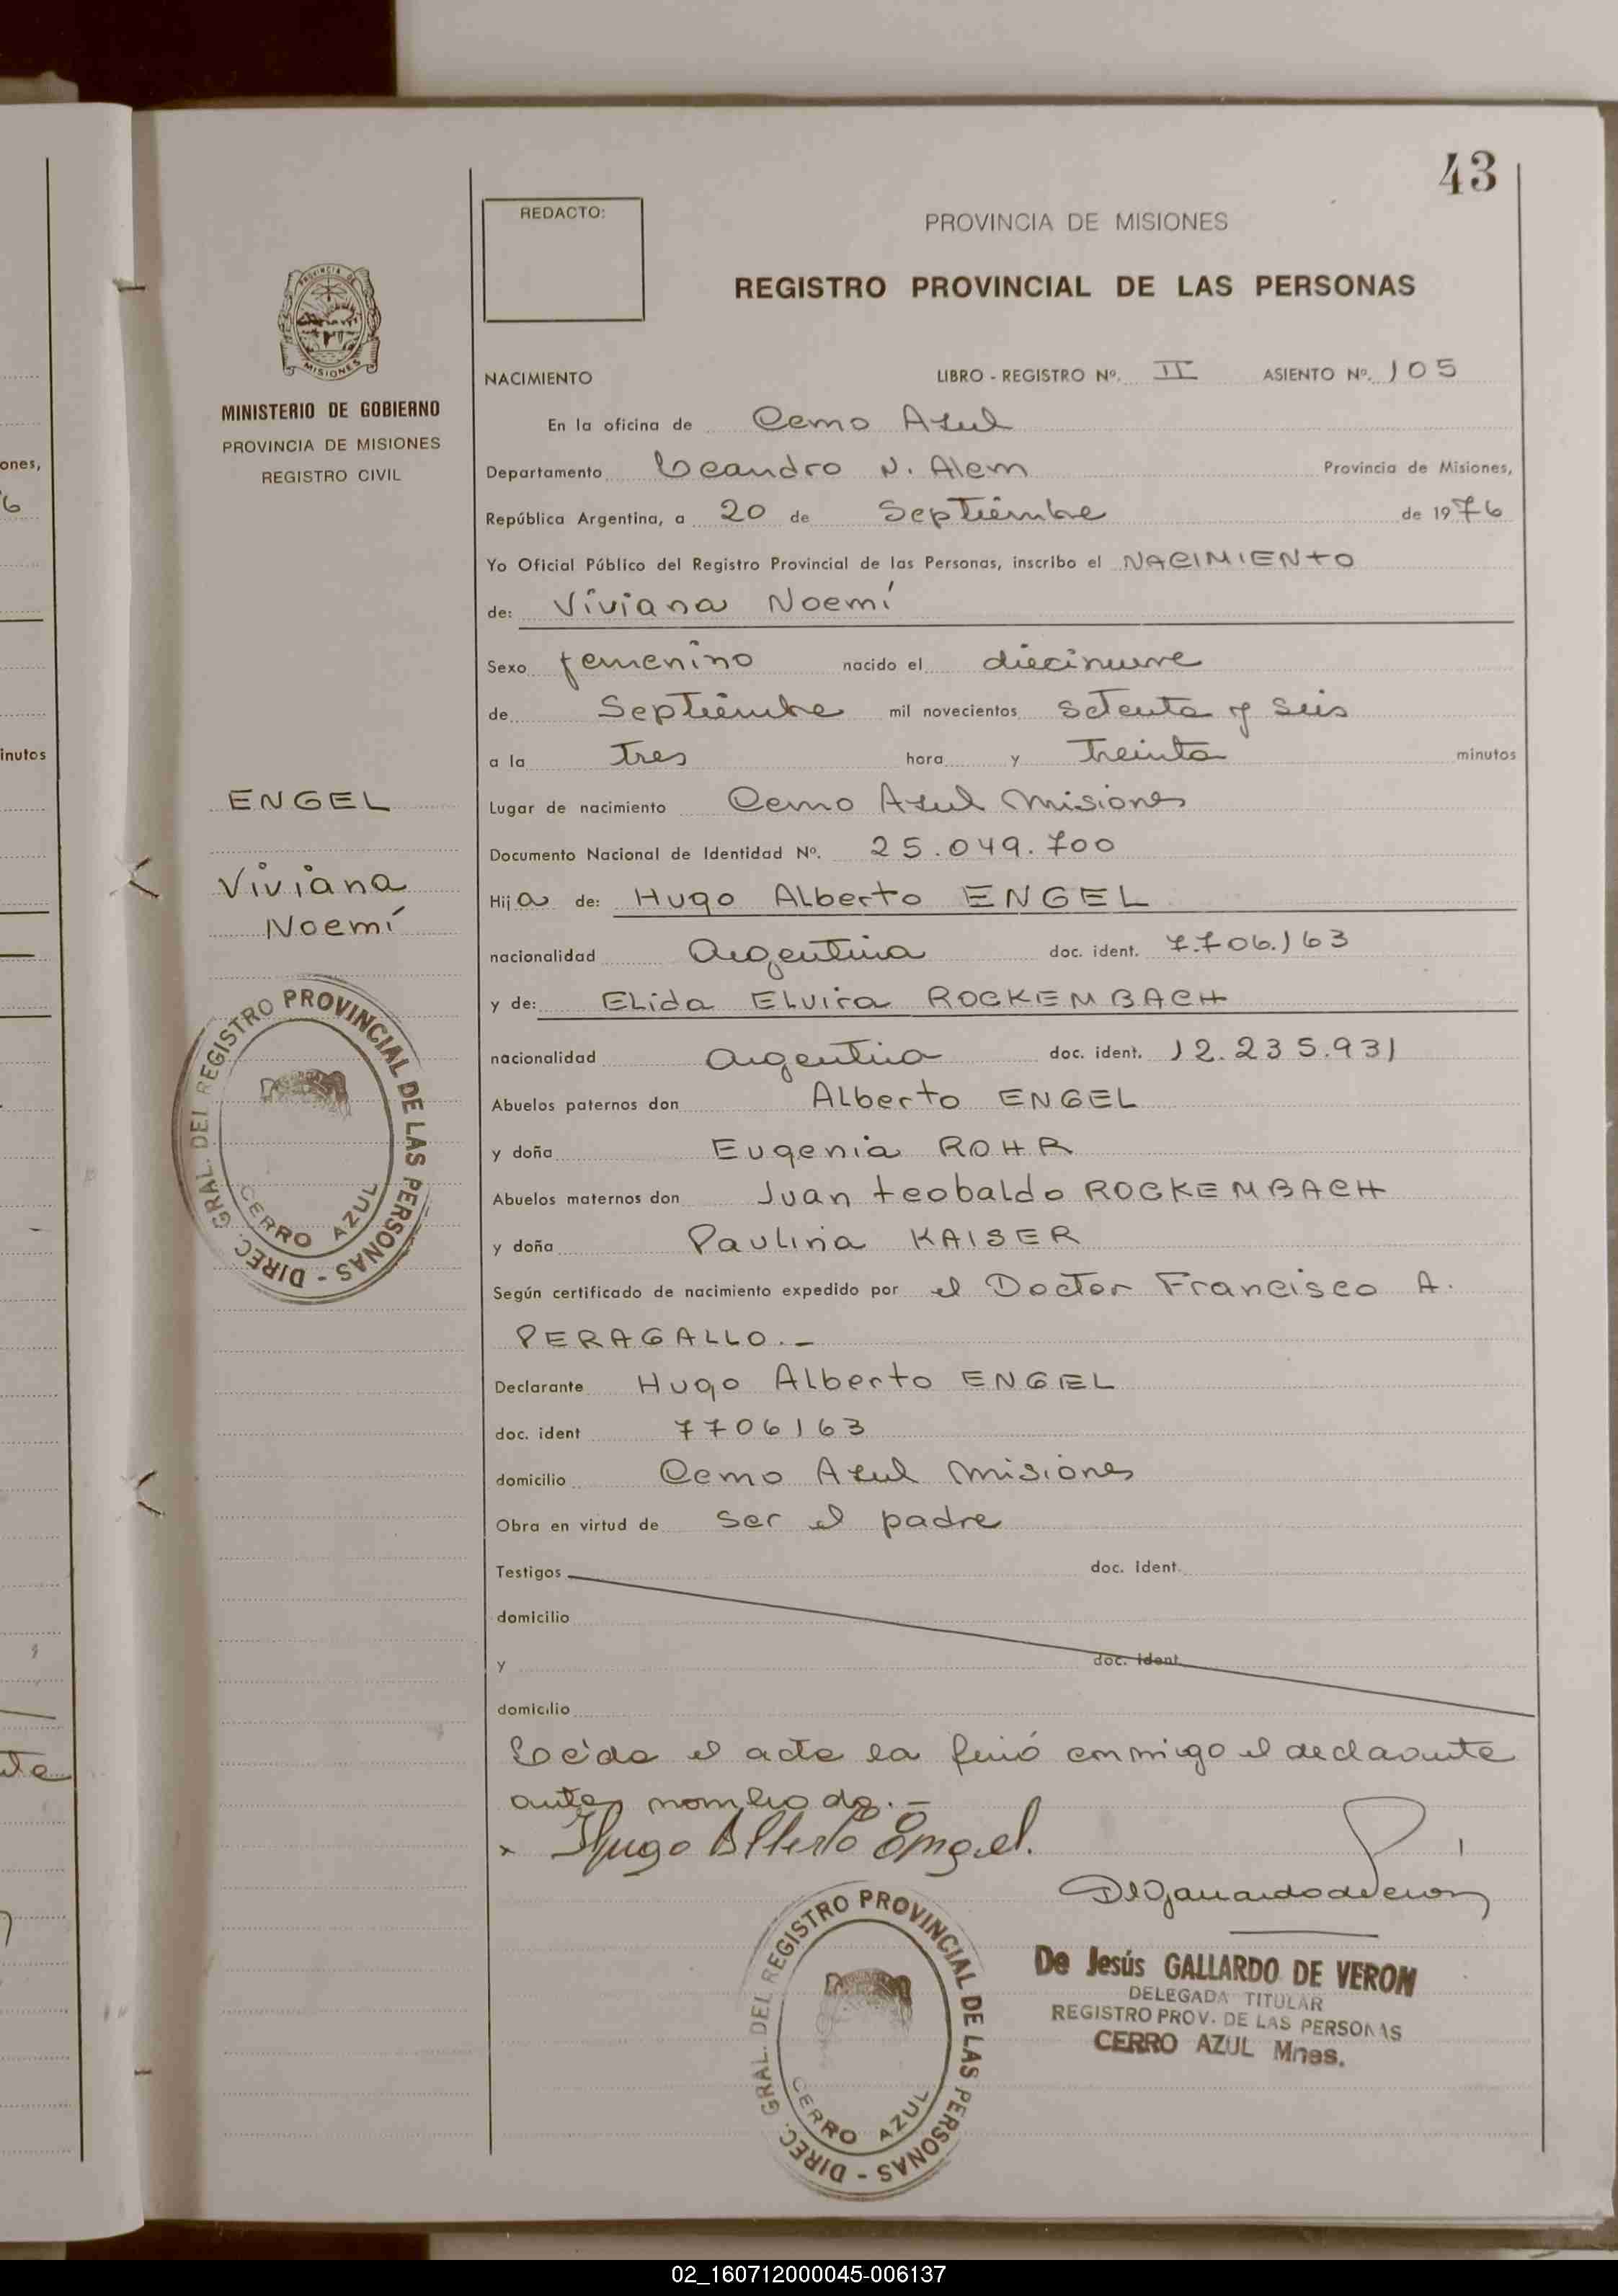 43
REDACTO:
PROVINCIA DE MISIONES
REGISTRO PROVINCIAL DE LAS PERSONAS
PROVINCIA DE
MISIONES
MINISTERIO DE GOBIERNO
PROVINCIA DE MISIONES
REGISTRO CIVIL
NACIMIENTO LIBRO - REGISTRO Nº. II ASIENTO Nº. 105
En la oficina de Cerro Azul
Departamento Leandro N. Alem Provincia de Misiones,
República Argentina, a 20 de Septiembre de 1976
Yo Oficial Público del Registro Provincial de las Personas, inscribo el NACIMIENTO
de: Viviana Noemí
Sexo femenino nacido el diecinueve
de Septiembre mil novecientos setenta y seis
a la tres hora y treinta minutos
Lugar de nacimiento Cerro Azul Misiones
Documento Nacional de Identidad Nº. 25.049.700
Hija de: Hugo Alberto ENGEL
nacionalidad Argentina doc. ident. 7.706.163
y de: Elida Elvira ROCKEMBACH
nacionalidad argentina doc. ident. 12.235.931
Abuelos paternos don Alberto ENGEL
y doña Eugenia ROHR
Abuelos maternos don Juan teobaldo ROCKEMBACH
y doña Paulina KAISER
Según certificado de nacimiento expedido por el Doctor Francisco A.
PERAGALLO.-
Declarante Hugo Alberto ENGEL
doc. ident 7706163
domicilio Cerro Azul Misiones
Obra en virtud de ser el padre
Testigos doc. ident.
domicilio
y doc. ident.
domicilio
Leída el acta la firmó conmigo el declarante
antes nombrado.-
x Hugo Alberto Engel.
ENGEL
Viviana
Noemí
DIREC. GRAL. DEL REGISTRO PROVINCIAL DE LAS PERSONAS -
CERRO AZUL
DIREC. GRAL. DEL REGISTRO PROVINCIAL DE LAS PERSONAS -
CERRO AZUL
De Jesús GALLARDO DE VERON
DELEGADA TITULAR
REGISTRO PROV. DE LAS PERSONAS
CERRO AZUL Mnes.
ones,
6
inutos
te
02_160712000045-006137